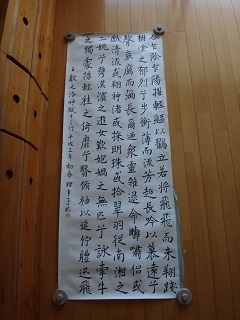 乍陰乍陽擢輕軀以鶴立若將飛而未翔踐
椒塗之郁烈兮步衡薄而流芳超長吟以慕遠兮
聲哀厲而彌長爾迺衆靈雜遝命疇嘯侶或
戲清流或翔神渚或採明珠或拾翠羽從南湘之
二妃兮攜漢濱之遊女歎媧之無匹兮詠牽牛
之獨處揚輕袿之倚靡兮翳脩袖以延佇體迅飛
王獻之洛神賦十三行 平成年初冬